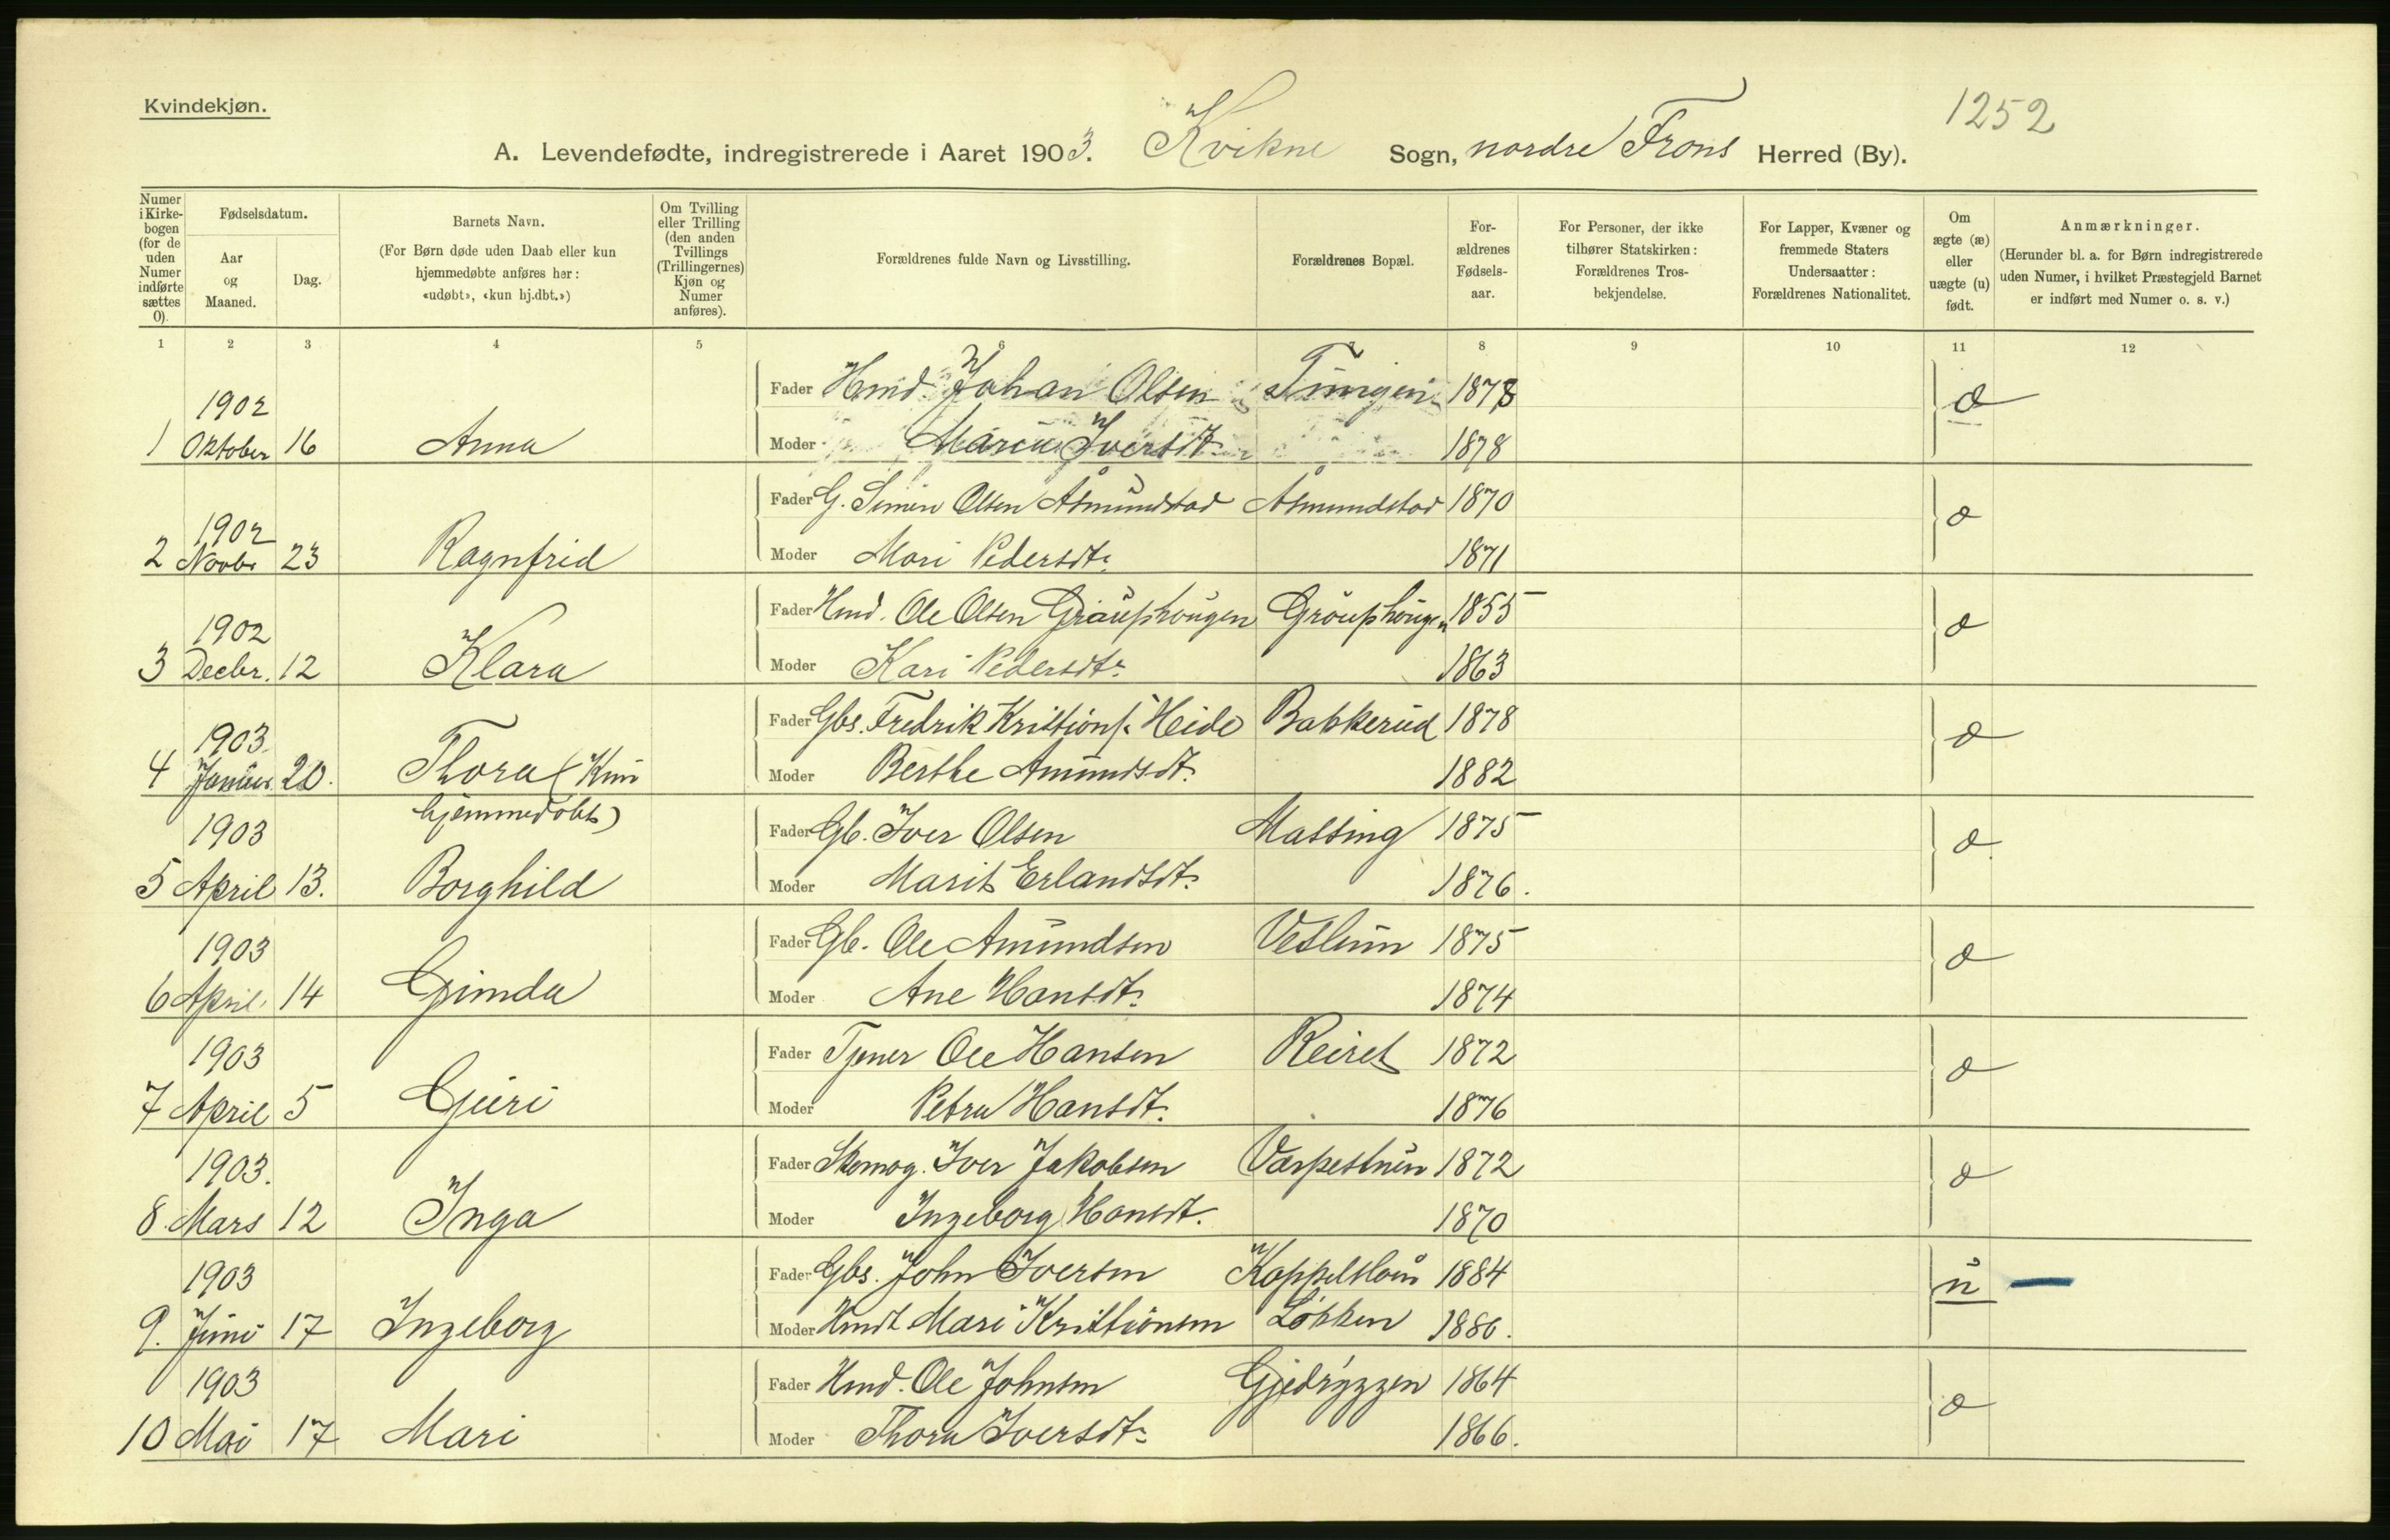 Kvindekjøn.
1252
A. Levendefødte, indregistrerede i Aaret 1903. Kvikne Sogn, nordre Frons Herred (By).
Numer i Kirkebogen (for de uden Numer indførte sættes 0).
Fødselsdatum.
Aar og Maaned.
Dag.
Barnets Navn.
(For Børn døde uden Daab eller kun hjemmedøbte anføres her: «udøbt», «kun hj.dbt.»)
Om Tvilling eller Trilling (den anden Tvillings (Trillingernes) Kjøn og Numer anføres).
Forældrenes fulde Navn og Livsstilling.
Forældrenes Bopæl.
Forældrenes Fødselsaar.
For Personer, der ikke tilhører Statskirken: Forældrenes Trosbekjendelse.
For Lapper, Kvæner og fremmede Staters Undersaatter: Forældrenes Nationalitet.
Om ægte (æ) eller uægte (u) født.
Anmærkninger.
(Herunder bl. a. for Børn indregistrerede uden Numer, i hvilket Præstegjeld Barnet er indført med Numer o. s. v.)
1 2 3 4 5 6 7 8 9 10 11 12
Fader Hmd. Johan Olsen 1878 æ
1902
1 Oktober 16 Anna Moder Maria Iversdt. 1878
Fader G. Simen Olsen Åsmundstad Åsmundstad 1870 æ
1902
2 Novbr 23 Ragnfrid Moder Mari Pedersdt. 1871
Fader Hmd. Ole Olsen Grauphougen Grouphougen 1855 æ
1902
3 Decbr. 12 Klara Moder Kari Pedersdt. 1863
Fader Gbs. Fredrik Kristians. Heide Bakkerud 1878 æ
1903
4 Januar 20. Thora (Kun Moder Berthe Amundsdt. 1882
hjemmedøbt)
Fader Gb. Iver Olsen Massing 1875 æ
1903
5 April 13. Borghild Moder Marit Erlandsdt. 1876.
Fader Gb. Ole Amundsen Veslum 1875 æ
1903
6 April 14 Gimda Moder Ane Hansdt. 1874
Fader Tjener Ole Hansen Reiret 1872 æ
1903
7 April 5 Guri Moder Petra Hansdt. 1876
Fader Skomag. Iver Jakobsen 1872 æ
1903.
8. Mars 12 Inga Moder Ingeborg Hansdt. 1870
Fader Gbs. John Iversen 1884 u
1903
9. Juni 17 Ingeborg Moder Hmdt Mari Kristiansen Løkken 1886.
Fader Hmd. Ole Johnsen Gjedryggen 1864 æ
1903
10 Mai 17 Mari Moder Thora Iversdt. 1866.